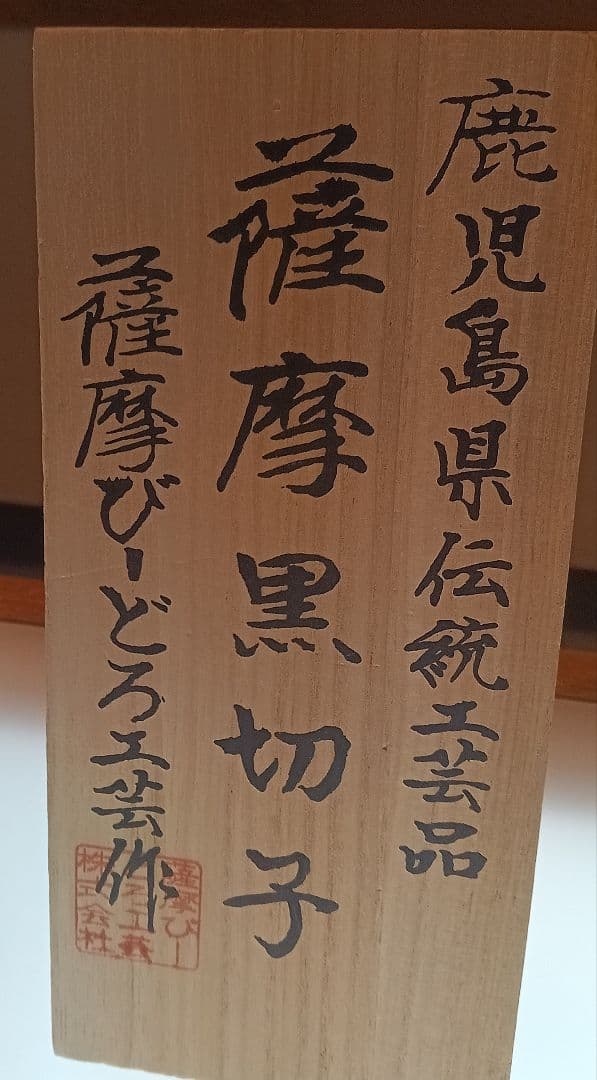 鹿児島県伝統工芸品
薩摩黒切子
薩摩びーどろ工芸作
薩摩びー
どろ工芸
株式会社